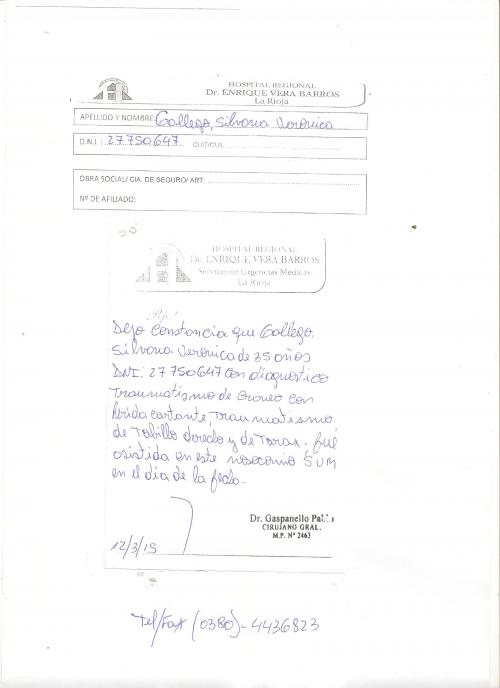 HOSPITAL REGIONAL
Dr. ENRIQUE VERA BARROS
La Rioja
APELLIDO Y NOMBRE: Gallego, Silvana Veronica
D.N.I. : 27750647 CUIT/CUIL
OBRA SOCIAL/ CIA. DE SEGURO/ ART:
Nº DE AFILIADO:
HOSPITAL REGIONAL
Dr. ENRIQUE VERA BARROS
Servicio de Urgencias Medicas
La Rioja
Rp/
Dejo constancia que Gallego,
Silvana Veronica de 35 años
DNI: 27 750647 con diagnostico
Traumatismo de Craneo con
herida cortante, Traumatismo
de Tobillo derecho y de Torax. fué
asistida en este nosocomio SUM
en el dia de la fecha.
Dr. Gaspanello Pablo
CIRUJANO GRAL.
M.P. Nº 2463
12/3/15
Tel/Fax (0380)-4436823